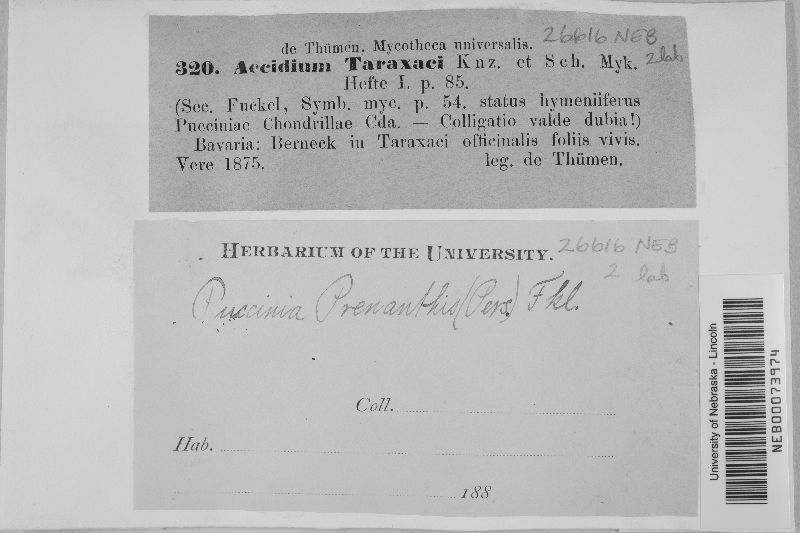 de Thümen. Mycotheca universalis.
26616 NEB
2 lab
320. Aecidium Taraxaci Knz. et Sch. Myk.
Hefte I. p. 85.
(Sec. Fuckel, Symb. myc. p. 54. status hymeniiferus
Pucciniae Chondrillae Cda. — Colligatio valde dubia!)
Bavaria: Berneck in Taraxaci officinalis foliis vivis.
Vere 1875. leg. de Thümen.
HERBARIUM OF THE UNIVERSITY.
26616 NEB
2 lab
Puccinia Prenanthis (Pers.) Fkl.
Coll.
Hab.
188
University of Nebraska - Lincoln
NEB00073974